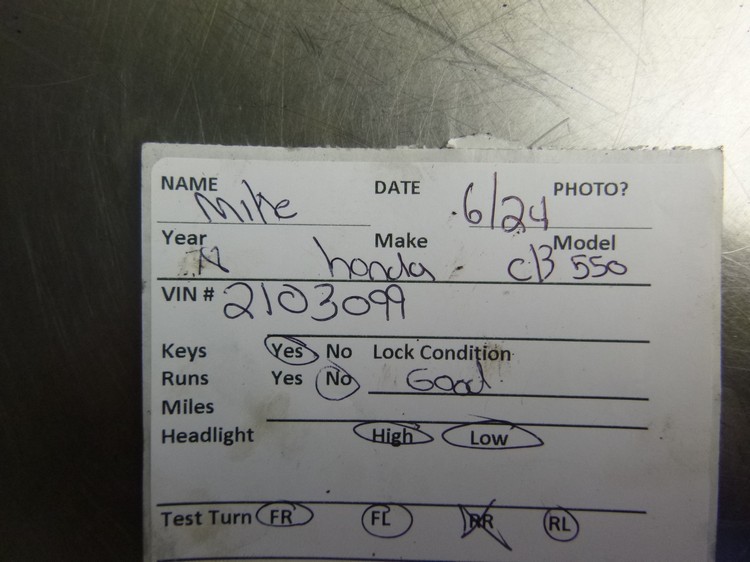 NAME Mike DATE 6/24 PHOTO?
Year Make Model
honda CB 550
VIN # 2103099
Keys Yes No Lock Condition
Runs Yes No Good
Miles
Headlight High Low
Test Turn FR FL RR RL